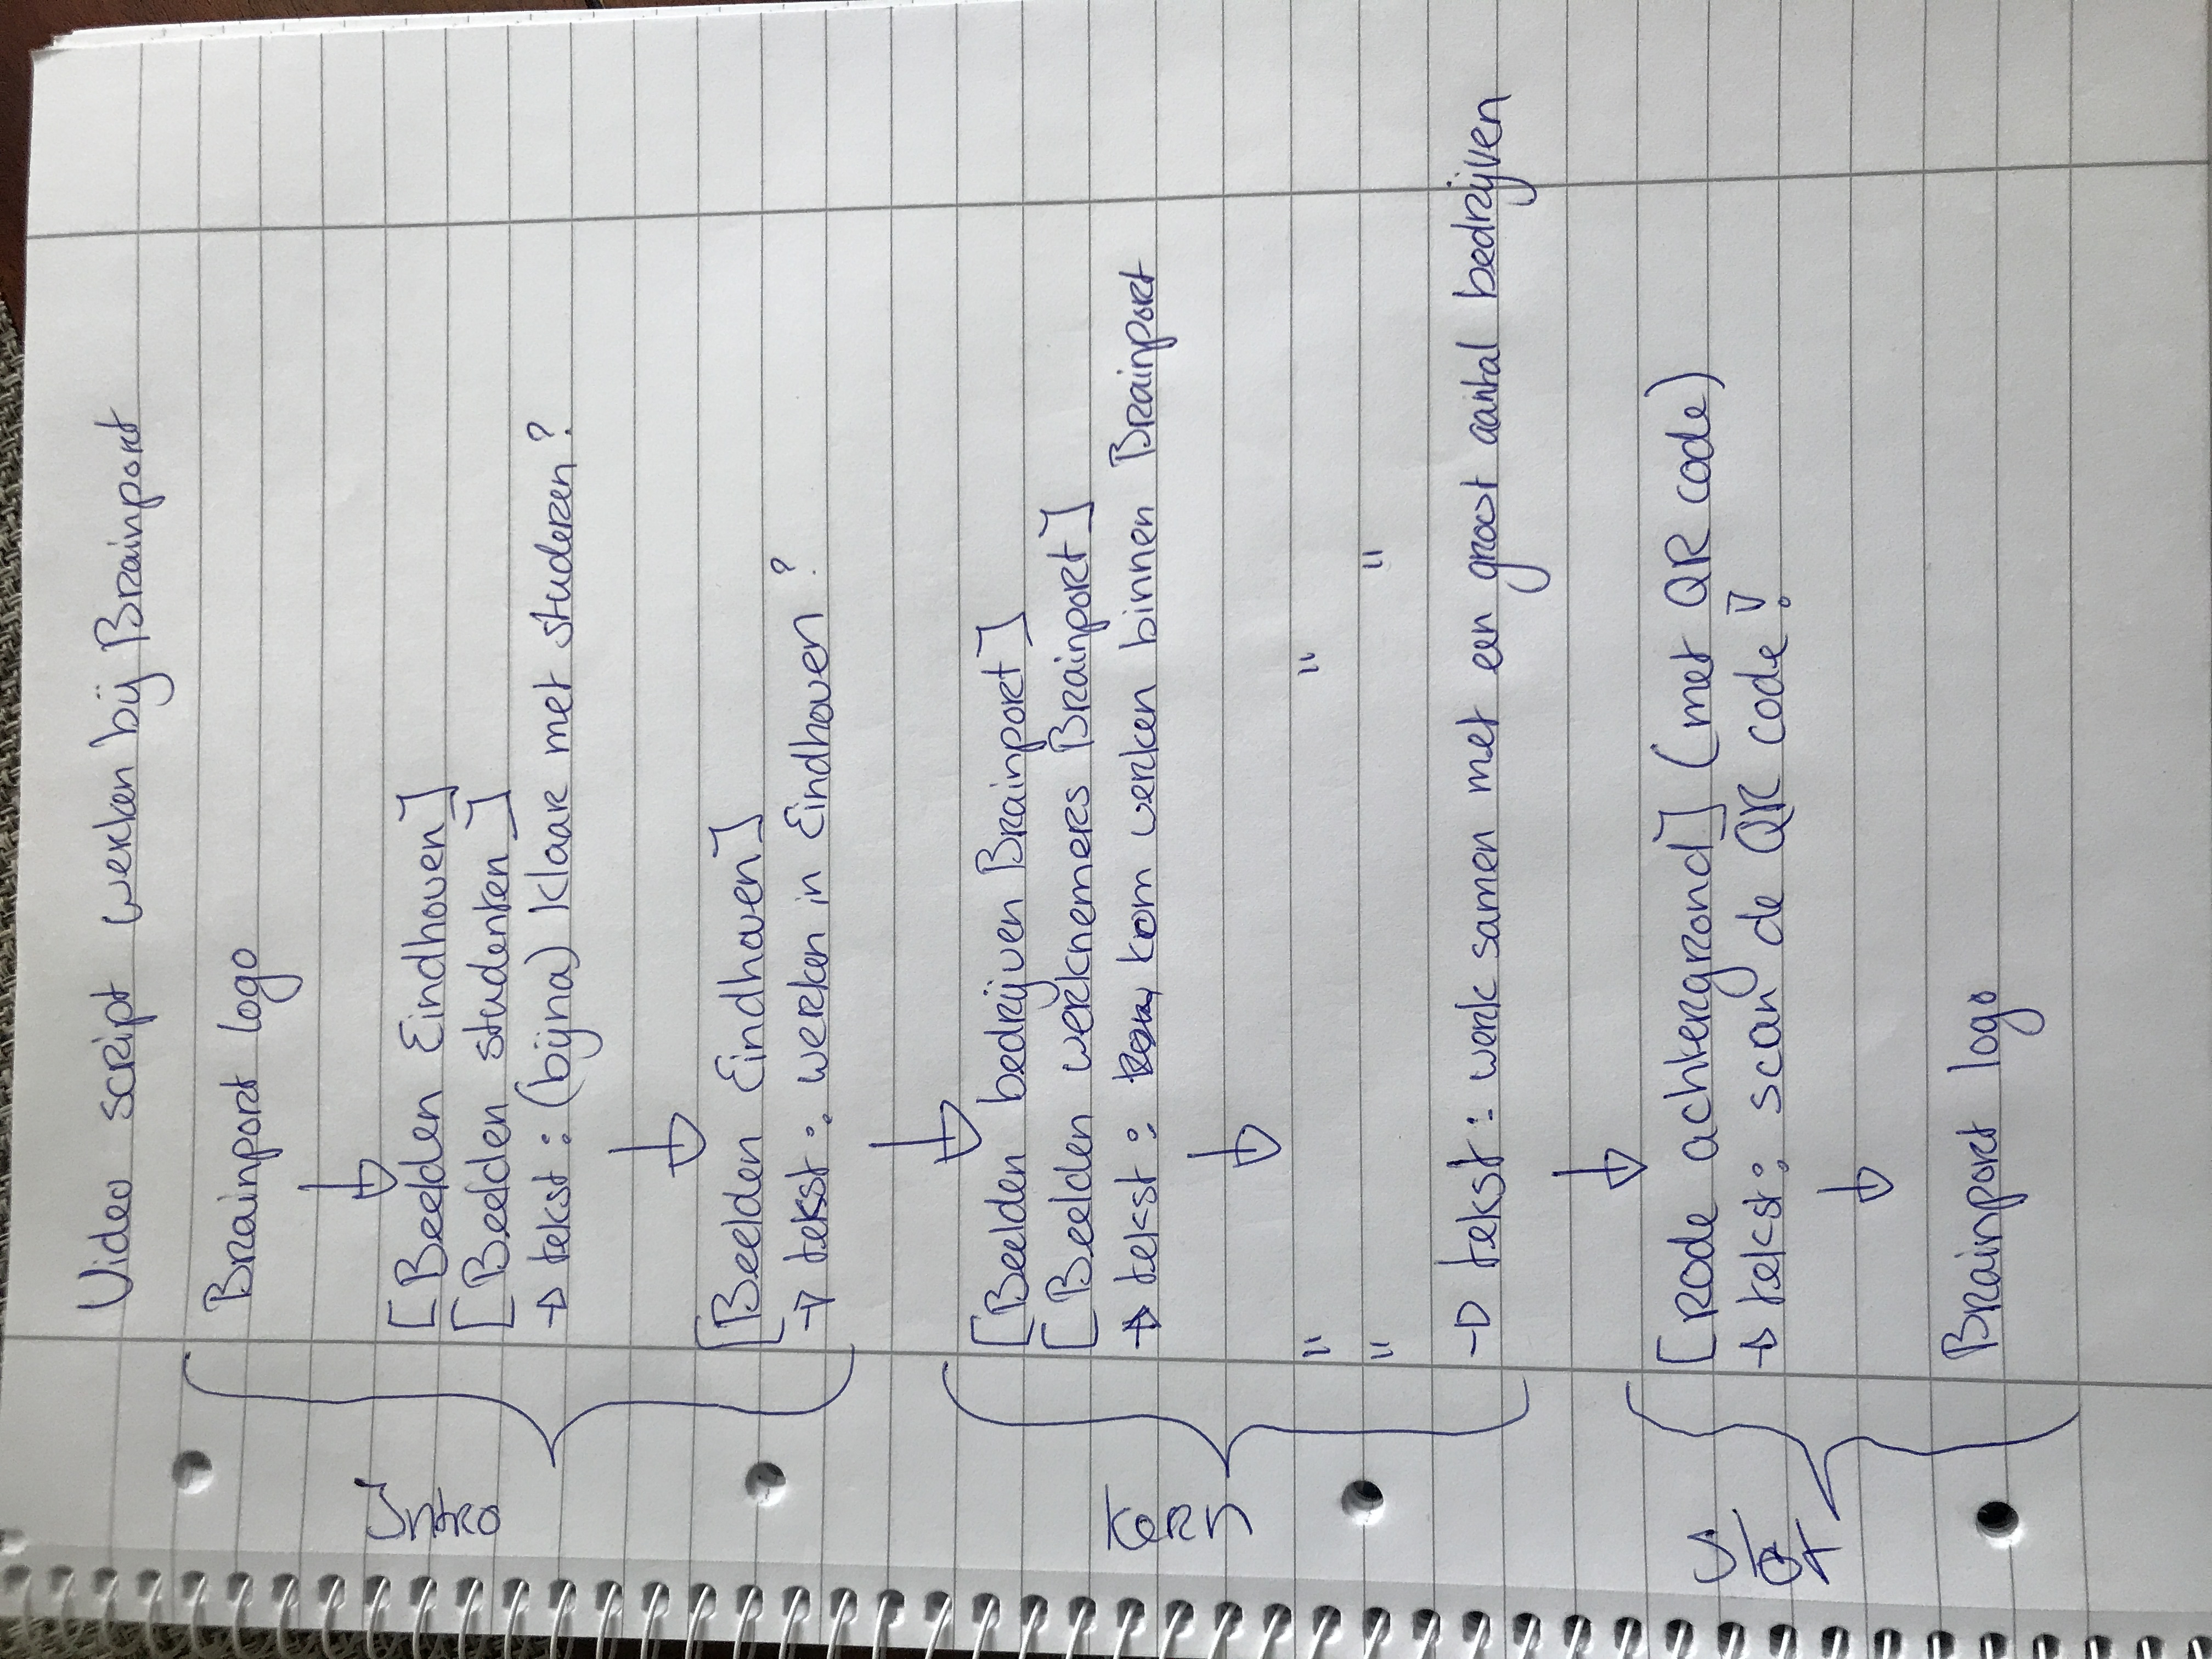 Video script werken bij Brainport
Intro
Brainport logo
↓
[Beelden Eindhoven]
[Beelden studenten]
→ tekst: (bijna) klaar met studeren?
↓
[Beelden Eindhoven]
→ tekst: werken in Eindhoven?
↓
Kern
[Beelden bedrijven Brainport]
[Beelden werknemers Brainport]
→ tekst: kom werken binnen Brainport
↓
" "
" "
→ tekst: werk samen met een groot aantal bedrijven
↓
Slot
[Rode achtergrond] (met QR code)
→ tekst: scan de QR code!
↓
Brainport logo